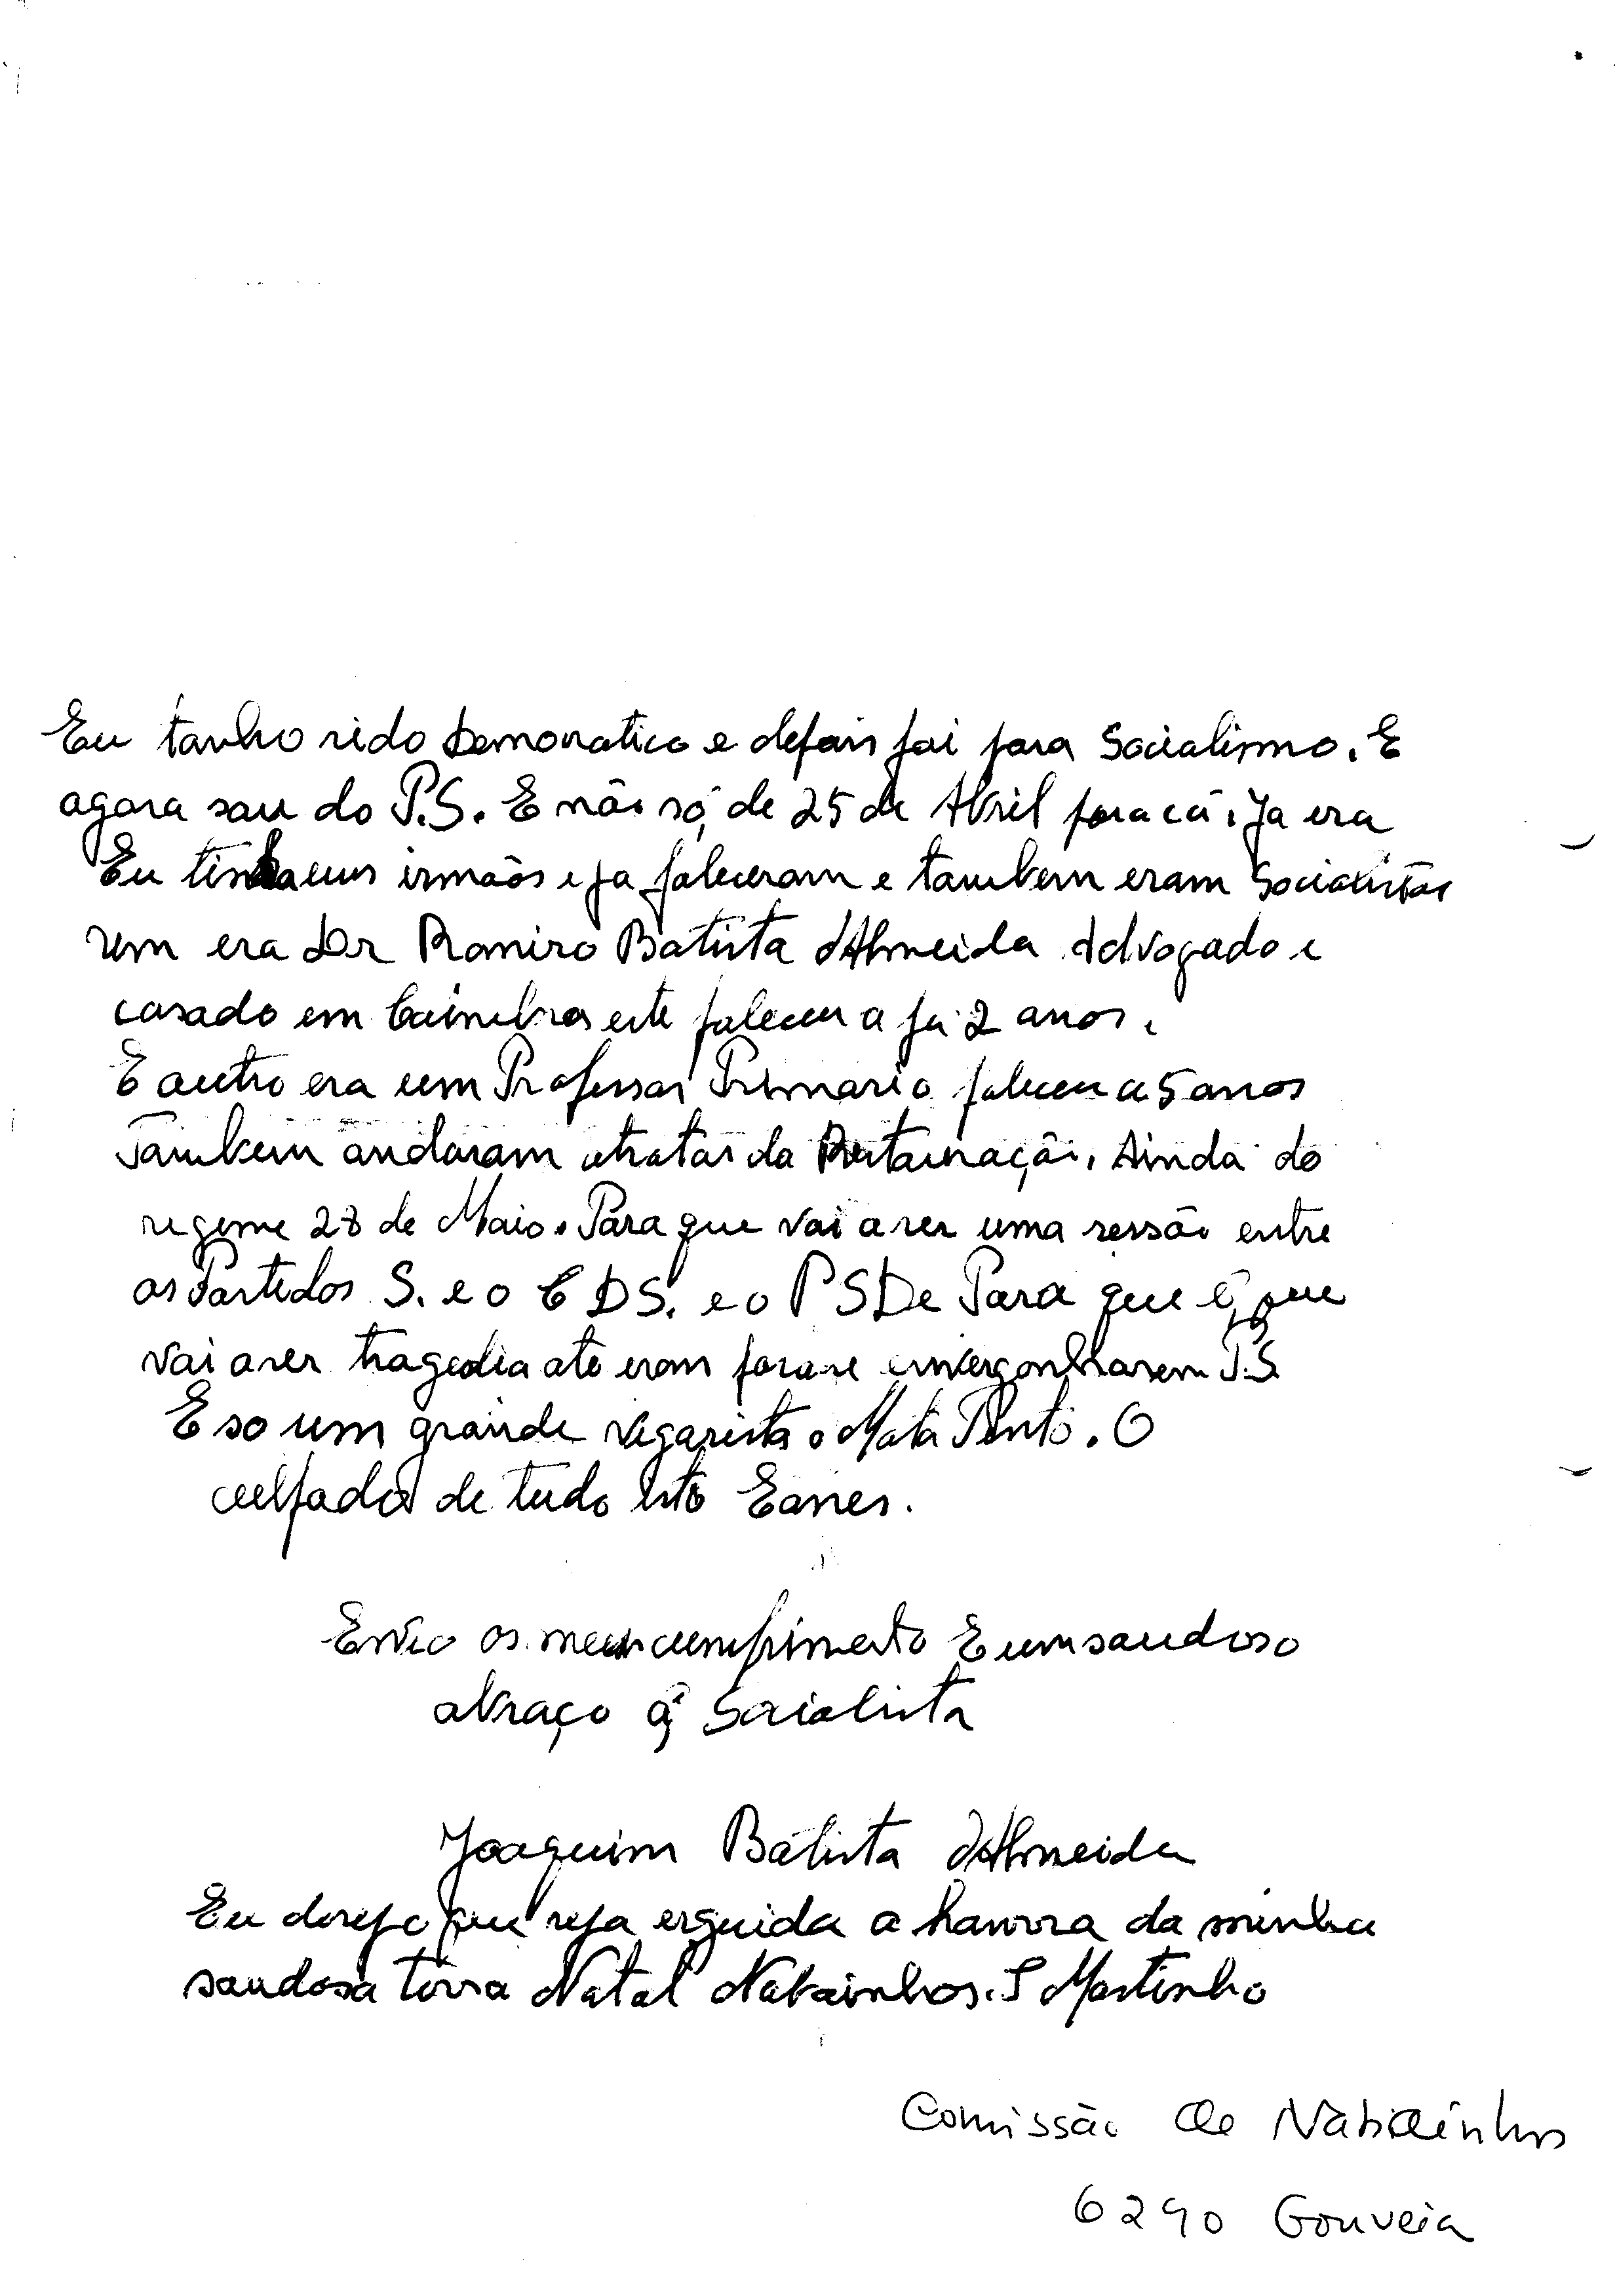 Eu tanho sido Democratico e depois foi para Socialismo. E
agora sou do P.S. E não só, de 25 de Abril para cá. Ja era
Eu tinha uns irmãos e ja faleceram e tambem eram Socialistas
um era Dr Ramiro Batista d'Almeida Advogado e
casado em Coimbra este faleceu a já 2 anos.
E outro era um Professor Primario faleceu a 5 anos
Tambem andaram a tratar da Restauração. Ainda do
regime 28 de Maio. Para que vai a ser uma sessão entre
os Partidos S. e o C D S. e o P S De Para que é que
vai a ser tragedia até eram para se envergonharem P.S
E so um grande vegarista o Mota Pinto. O
culpado de tudo isto Eanes.
Envio os meus cumprimento E um saudoso
abraço á Socialista
Joaquim Batista d'Almeida
Eu desejo que seja erguida a hanrra da minha
saudosa terra Natal Nabainhos. S Martinho
Comissão de Nabainhos
6290 Gouveia